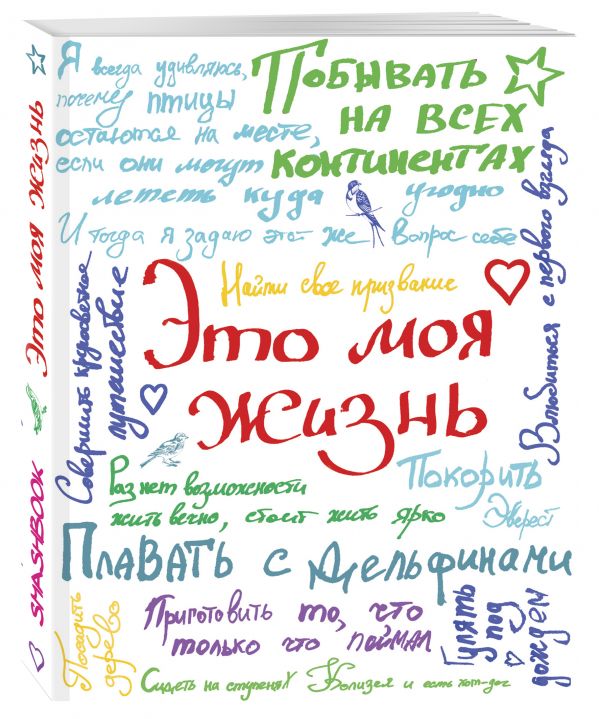 Я всегда удивляюсь,
почему птицы
остаются на месте,
если они могут
лететь куда угодно
И тогда я задаю этот же вопрос себе
Побывать
на всех
континентах
Влюбиться с первого взгляда
Найти свое призвание
Это моя
жизнь
Совершить кругосветное
путешествие
Покорить
Эверест
Раз нет возможности
жить вечно, стоит жить ярко
Плавать с дельфинами
Посадить
дерево
Приготовить то, что
только что поймал
Гулять
под
дождем
Сидеть на ступенях Колизея и есть хот-дог
Это моя жизнь
SMASHBOOK